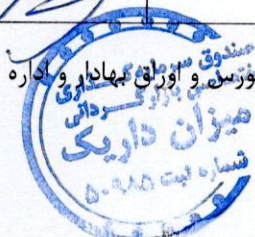 ورس و اوراق بهادار و اداره
صندوق سرمایه‌گذاری
اختصاصی بازارگردانی
میزان داریک
شماره ثبت ۵۰۹۸۵